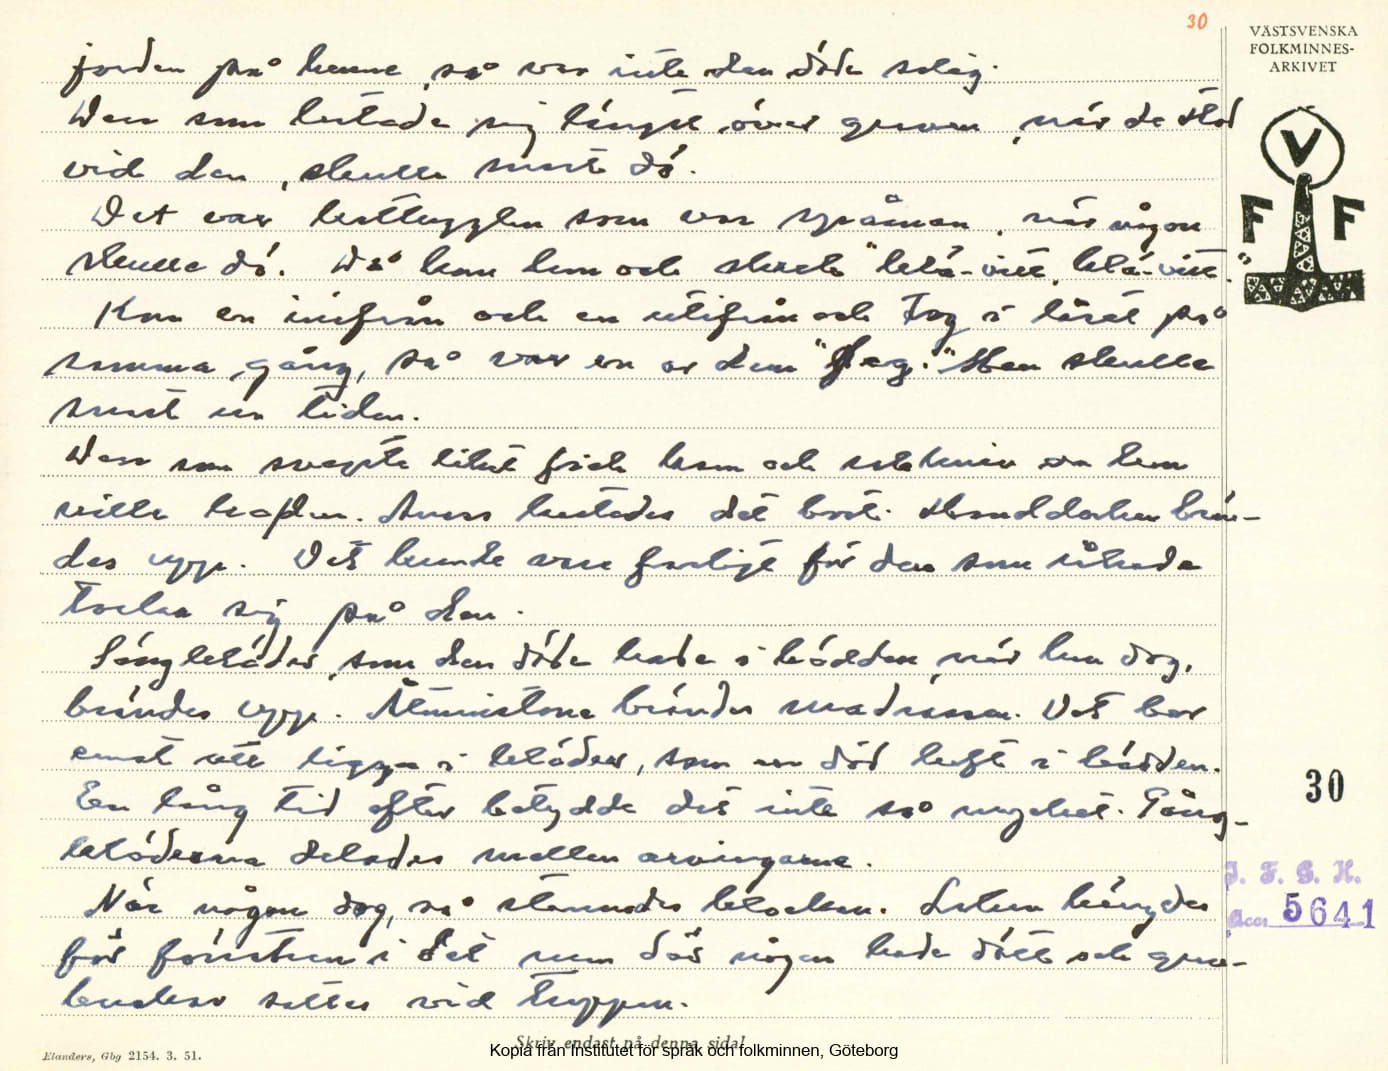 30
VÄSTSVENSKA
FOLKMINNES-
ARKIVET
V
F F
jorden på henne, så var inte den döde salig.
Den som lutade sig längst över graven, när de stod
vid den, skulle snart dö.
Det var kattugglan som var spåman, när någon
skulle dö. Då kom hon och skrek "klä-vitt, klä-vitt."
Kom en inifrån och en utifrån och tog i låset på
samma gång, så var en av dem "feg." Han skulle
snart un tiden.
Den som svepte liket fick kam och rakkniv om hon
ville ha den. Annars kastades det bort. Handduken brän-
des upp. Det kunde vara farligt för den som råkade
torka sig på den.
Sängkläder, som den döde hade i bädden, när han dog,
brändes upp. Åtminstone brändes madrassen. Det bar
emot att ligga i kläder, som en död haft i bädden.
En lång tid efter betydde det inte så mycket. Gång-
kläderna delades mellan arvingarna.
När någon dog, så stannades klockan. Lakan hängdes
för fönstren i det rum där någon hade dött och gran-
buskar sattes vid trappan.
30
I. F. G. H.
Acc. 5641
Skriv endast på denna sida!
Elanders, Gbg 2154. 3. 51.
Kopia från Institutet för språk och folkminnen, Göteborg